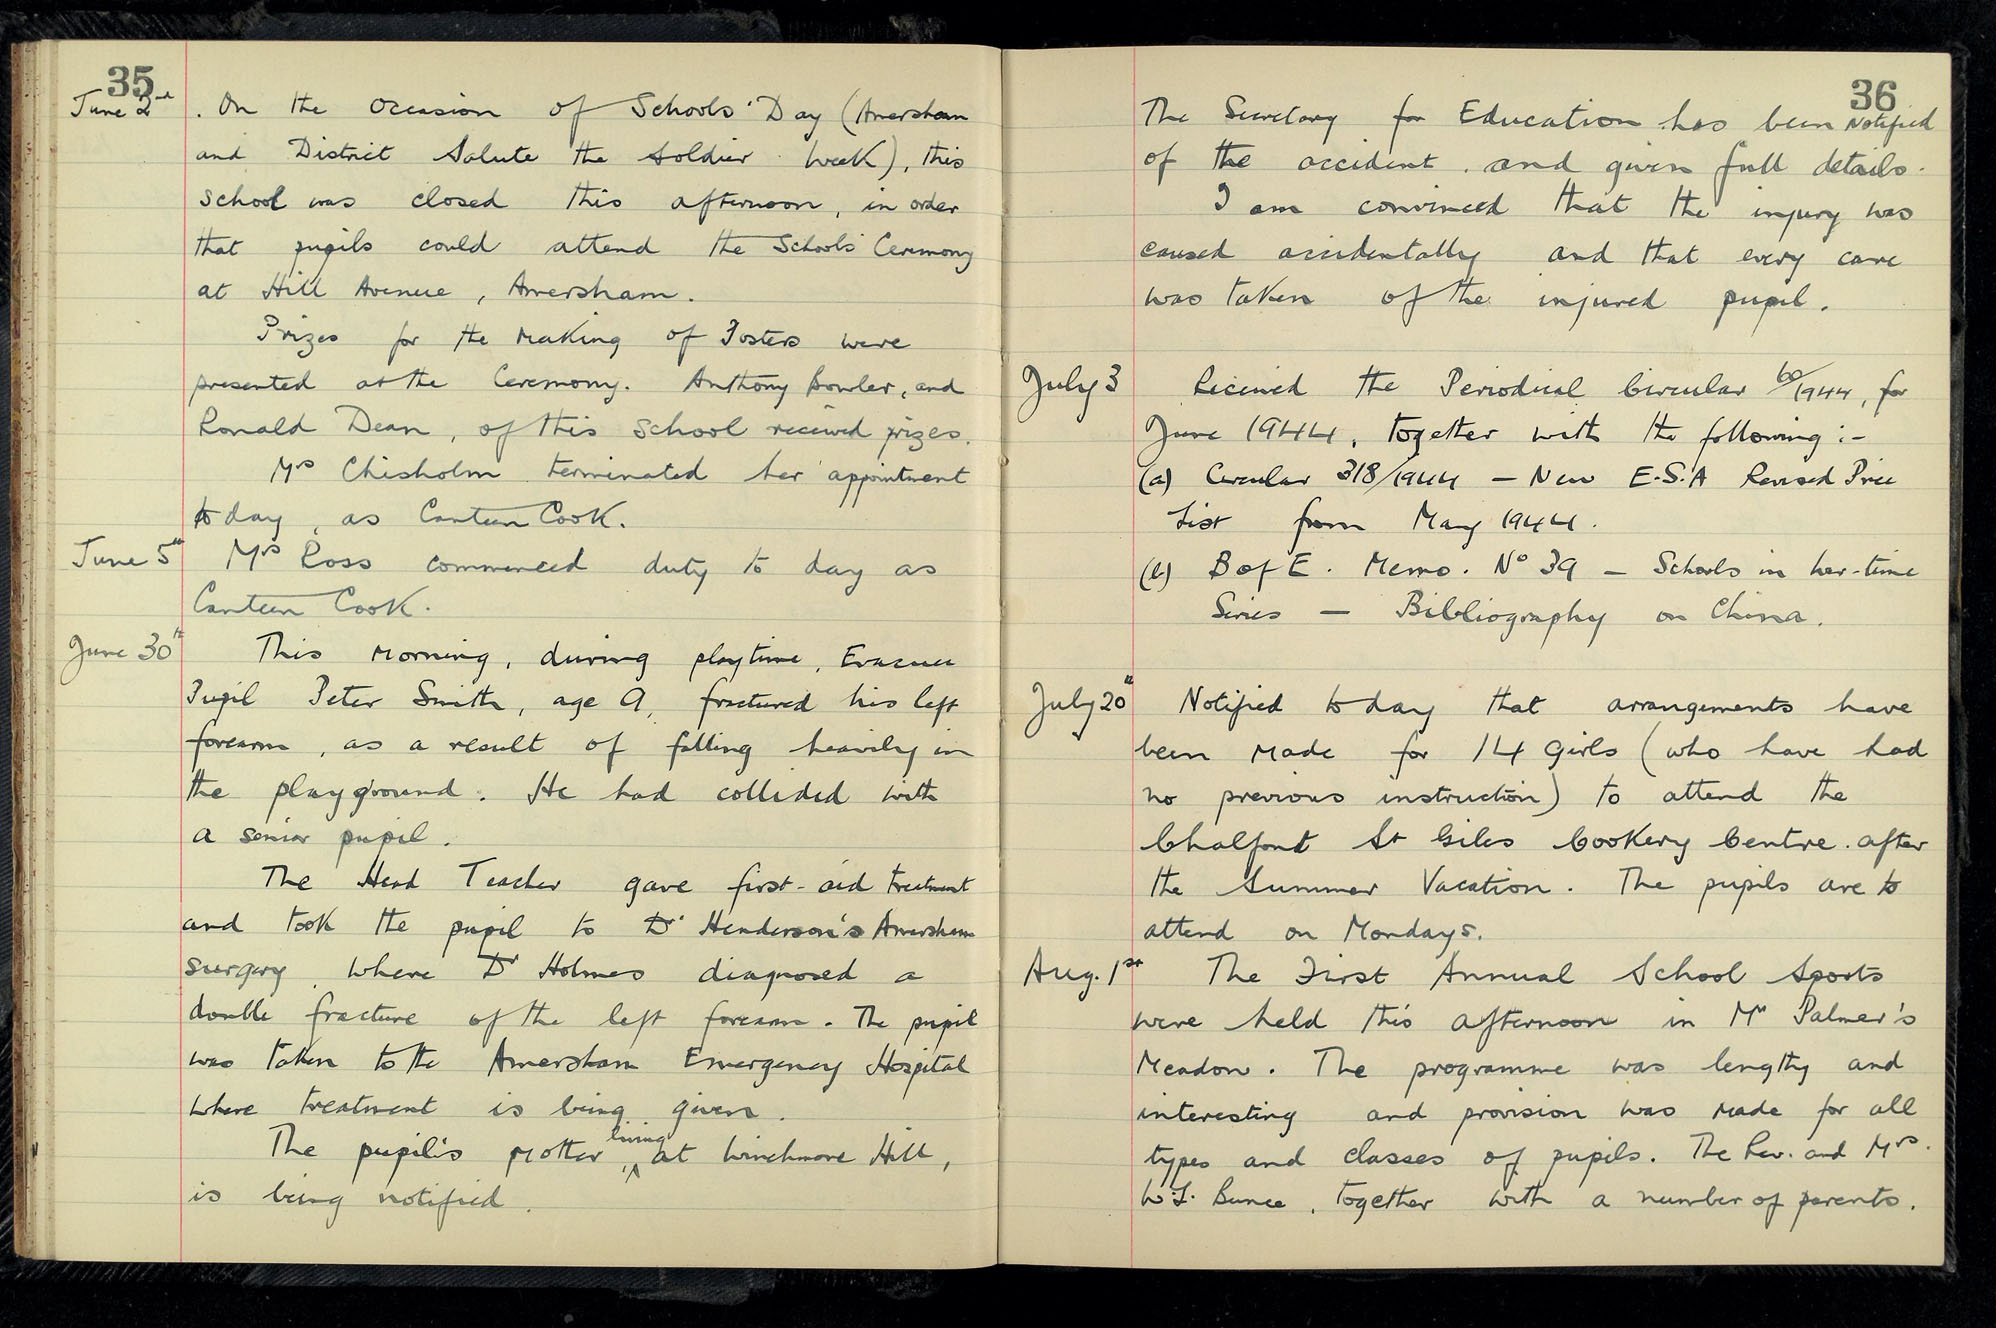 35
June 2nd. On the occasion of Schools' Day (Amersham
and District Salute the Soldier Week), this
school was closed this afternoon, in order
that pupils could attend the Schools' Ceremony
at Hill Avenue, Amersham.
Prizes for the making of Posters were
presented at the Ceremony. Anthony Bowler, and
Ronald Dean, of this school received prizes.
Mrs Chisholm terminated her appointment
to day, as Canteen Cook.
June 5th Mrs Ross commenced duty to day as
Canteen Cook.
June 30th This morning, during playtime, Evacuee
Pupil Peter Smith, age 9, fractured his left
forearm, as a result of falling heavily in
the playground. He had collided with
a senior pupil.
The Head Teacher gave first-aid treatment
and took the pupil to Dr Henderson's Amersham
surgery, where Dr Holmes diagnosed a
double fracture of the left forearm. The pupil
was taken to the Amersham Emergency Hospital
where treatment is being given.
The pupil's mother, living at Winchmore Hill,
is being notified.
36
The Secretary for Education has been notified
of the accident, and given full details.
I am convinced that the injury was
caused accidentally and that every care
was taken of the injured pupil.
July 3 Received the Periodical Circular 60/1944, for
June 1944, together with the following:-
(a) Circular 318/1944 — New E.S.A Revised Price
List from May 1944.
(b) B of E. Memo. No 39 — Schools in War-time
Series — Bibliography on China.
July 20th Notified to day that arrangements have
been made for 14 Girls (who have had
no previous instruction) to attend the
Chalfont St Giles Cookery Centre after
the Summer Vacation. The pupils are to
attend on Mondays.
Aug. 1st The First Annual School Sports
were held this afternoon in Mr Palmer's
Meadow. The programme was lengthy and
interesting and provision was made for all
types and classes of pupils. The Rev. and Mrs.
W.L. Bunce, together with a number of parents.